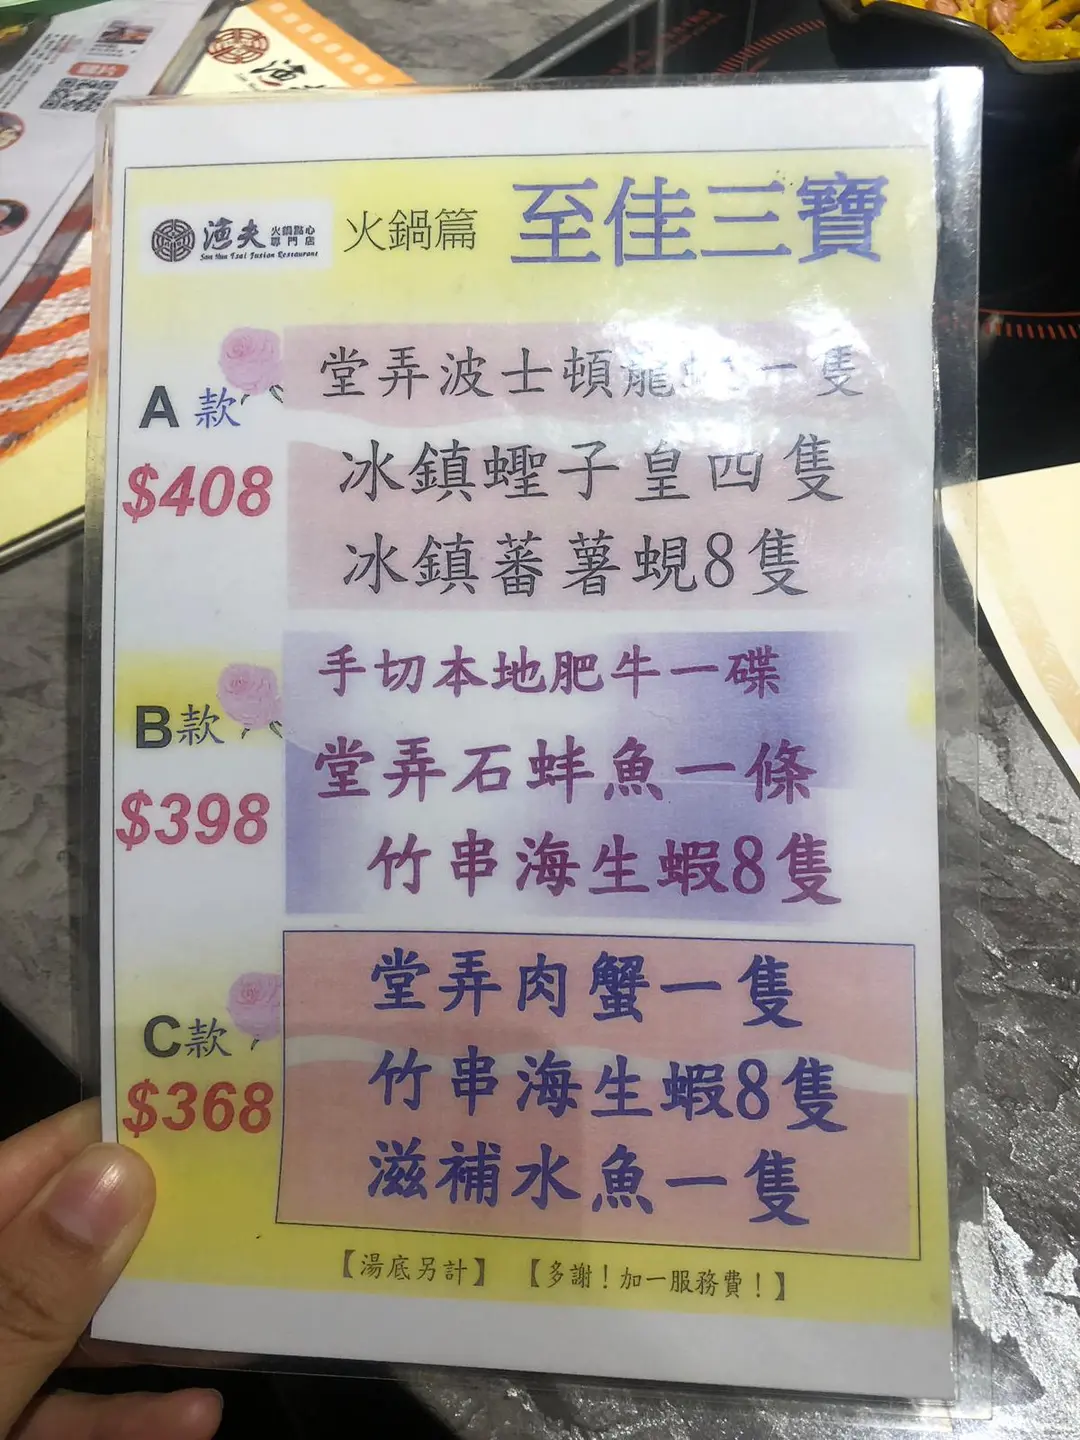 漁夫 火鍋點心專門店
Sun Hun Tsai Fusion Restaurant
火鍋篇
至佳三寶
A款
$408
堂弄波士頓龍 一隻
冰鎮蟶子皇四隻
冰鎮蕃薯蜆8隻
B款
$398
手切本地肥牛一碟
堂弄石蚌魚一條
竹串海生蝦8隻
C款
$368
堂弄肉蟹一隻
竹串海生蝦8隻
滋補水魚一隻
【湯底另計】 【多謝!加一服務費!】
漁